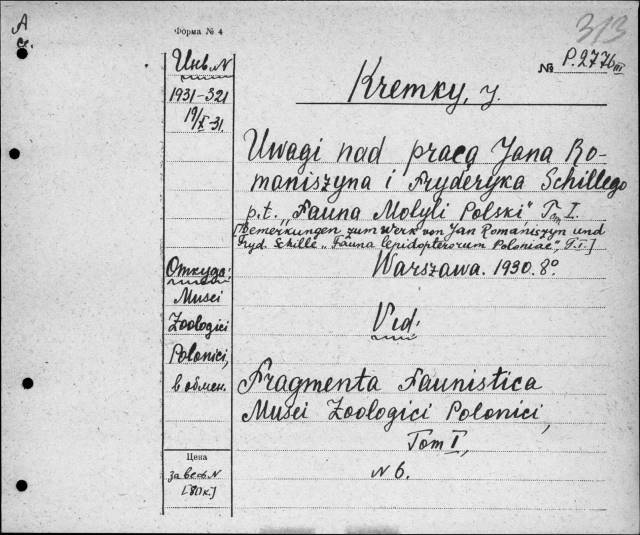 A
c.
Форма № 4
313
Инв. N
№ P.2776 III
1931-321
19/X-31.
Kremky, J.
Uwagi nad pracą Jana Ro-
maniszyna i Fryderyka Schillego
p.t. „Fauna Motyli Polski" Tom I.
[Bemerkungen zum Werk von Jan Romaniszyn und
Fryd. Schille „Fauna lepidopterorum Poloniae" T.I.]
Warszawa. 1930. 8º.
Откуда:
Musei
Zoologici
Polonici,
в обмен.
Vid:
Fragmenta Faunistica
Musei Zoologici Polonici,
Tom I,
N 6.
Цена
за весь N
[80к.]